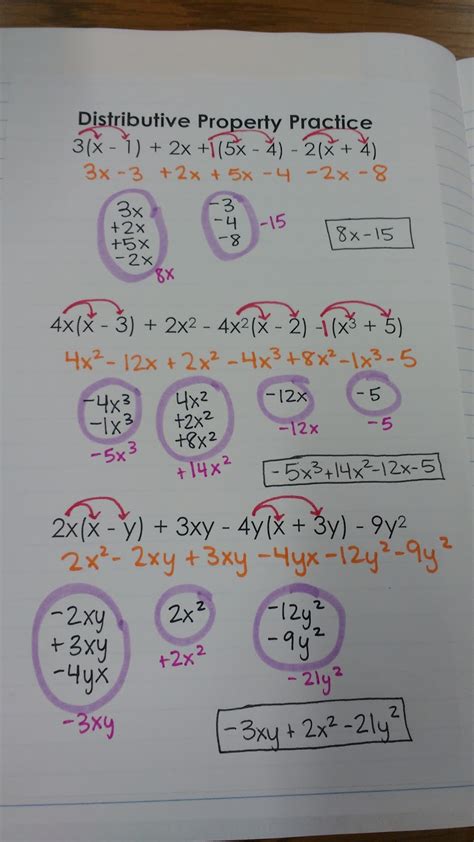 Distributive Property Practice
3(x - 1) + 2x + 1(5x - 4) - 2(x + 4)
3x - 3 + 2x + 5x - 4 - 2x - 8
3x
+2x
+5x
-2x
8x
-3
-4
-8
-15
8x - 15
4x(x - 3) + 2x² - 4x²(x - 2) - 1(x³ + 5)
4x² - 12x + 2x² - 4x³ + 8x² - 1x³ - 5
-4x³
-1x³
-5x³
4x²
+2x²
+8x²
+14x²
-12x
-12x
-5
-5
-5x³+14x²-12x-5
2x(x - y) + 3xy - 4y(x + 3y) - 9y²
2x² - 2xy + 3xy - 4yx - 12y² - 9y²
-2xy
+3xy
-4yx
-3xy
2x²
+2x²
-12y²
-9y²
-21y²
-3xy + 2x² - 21y²